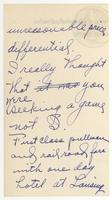 unreasonable price
differential.
I really thought
that you
were
seeking a game
not $.
First class pullman
and railroad fare
with one day
hotel at Lansing